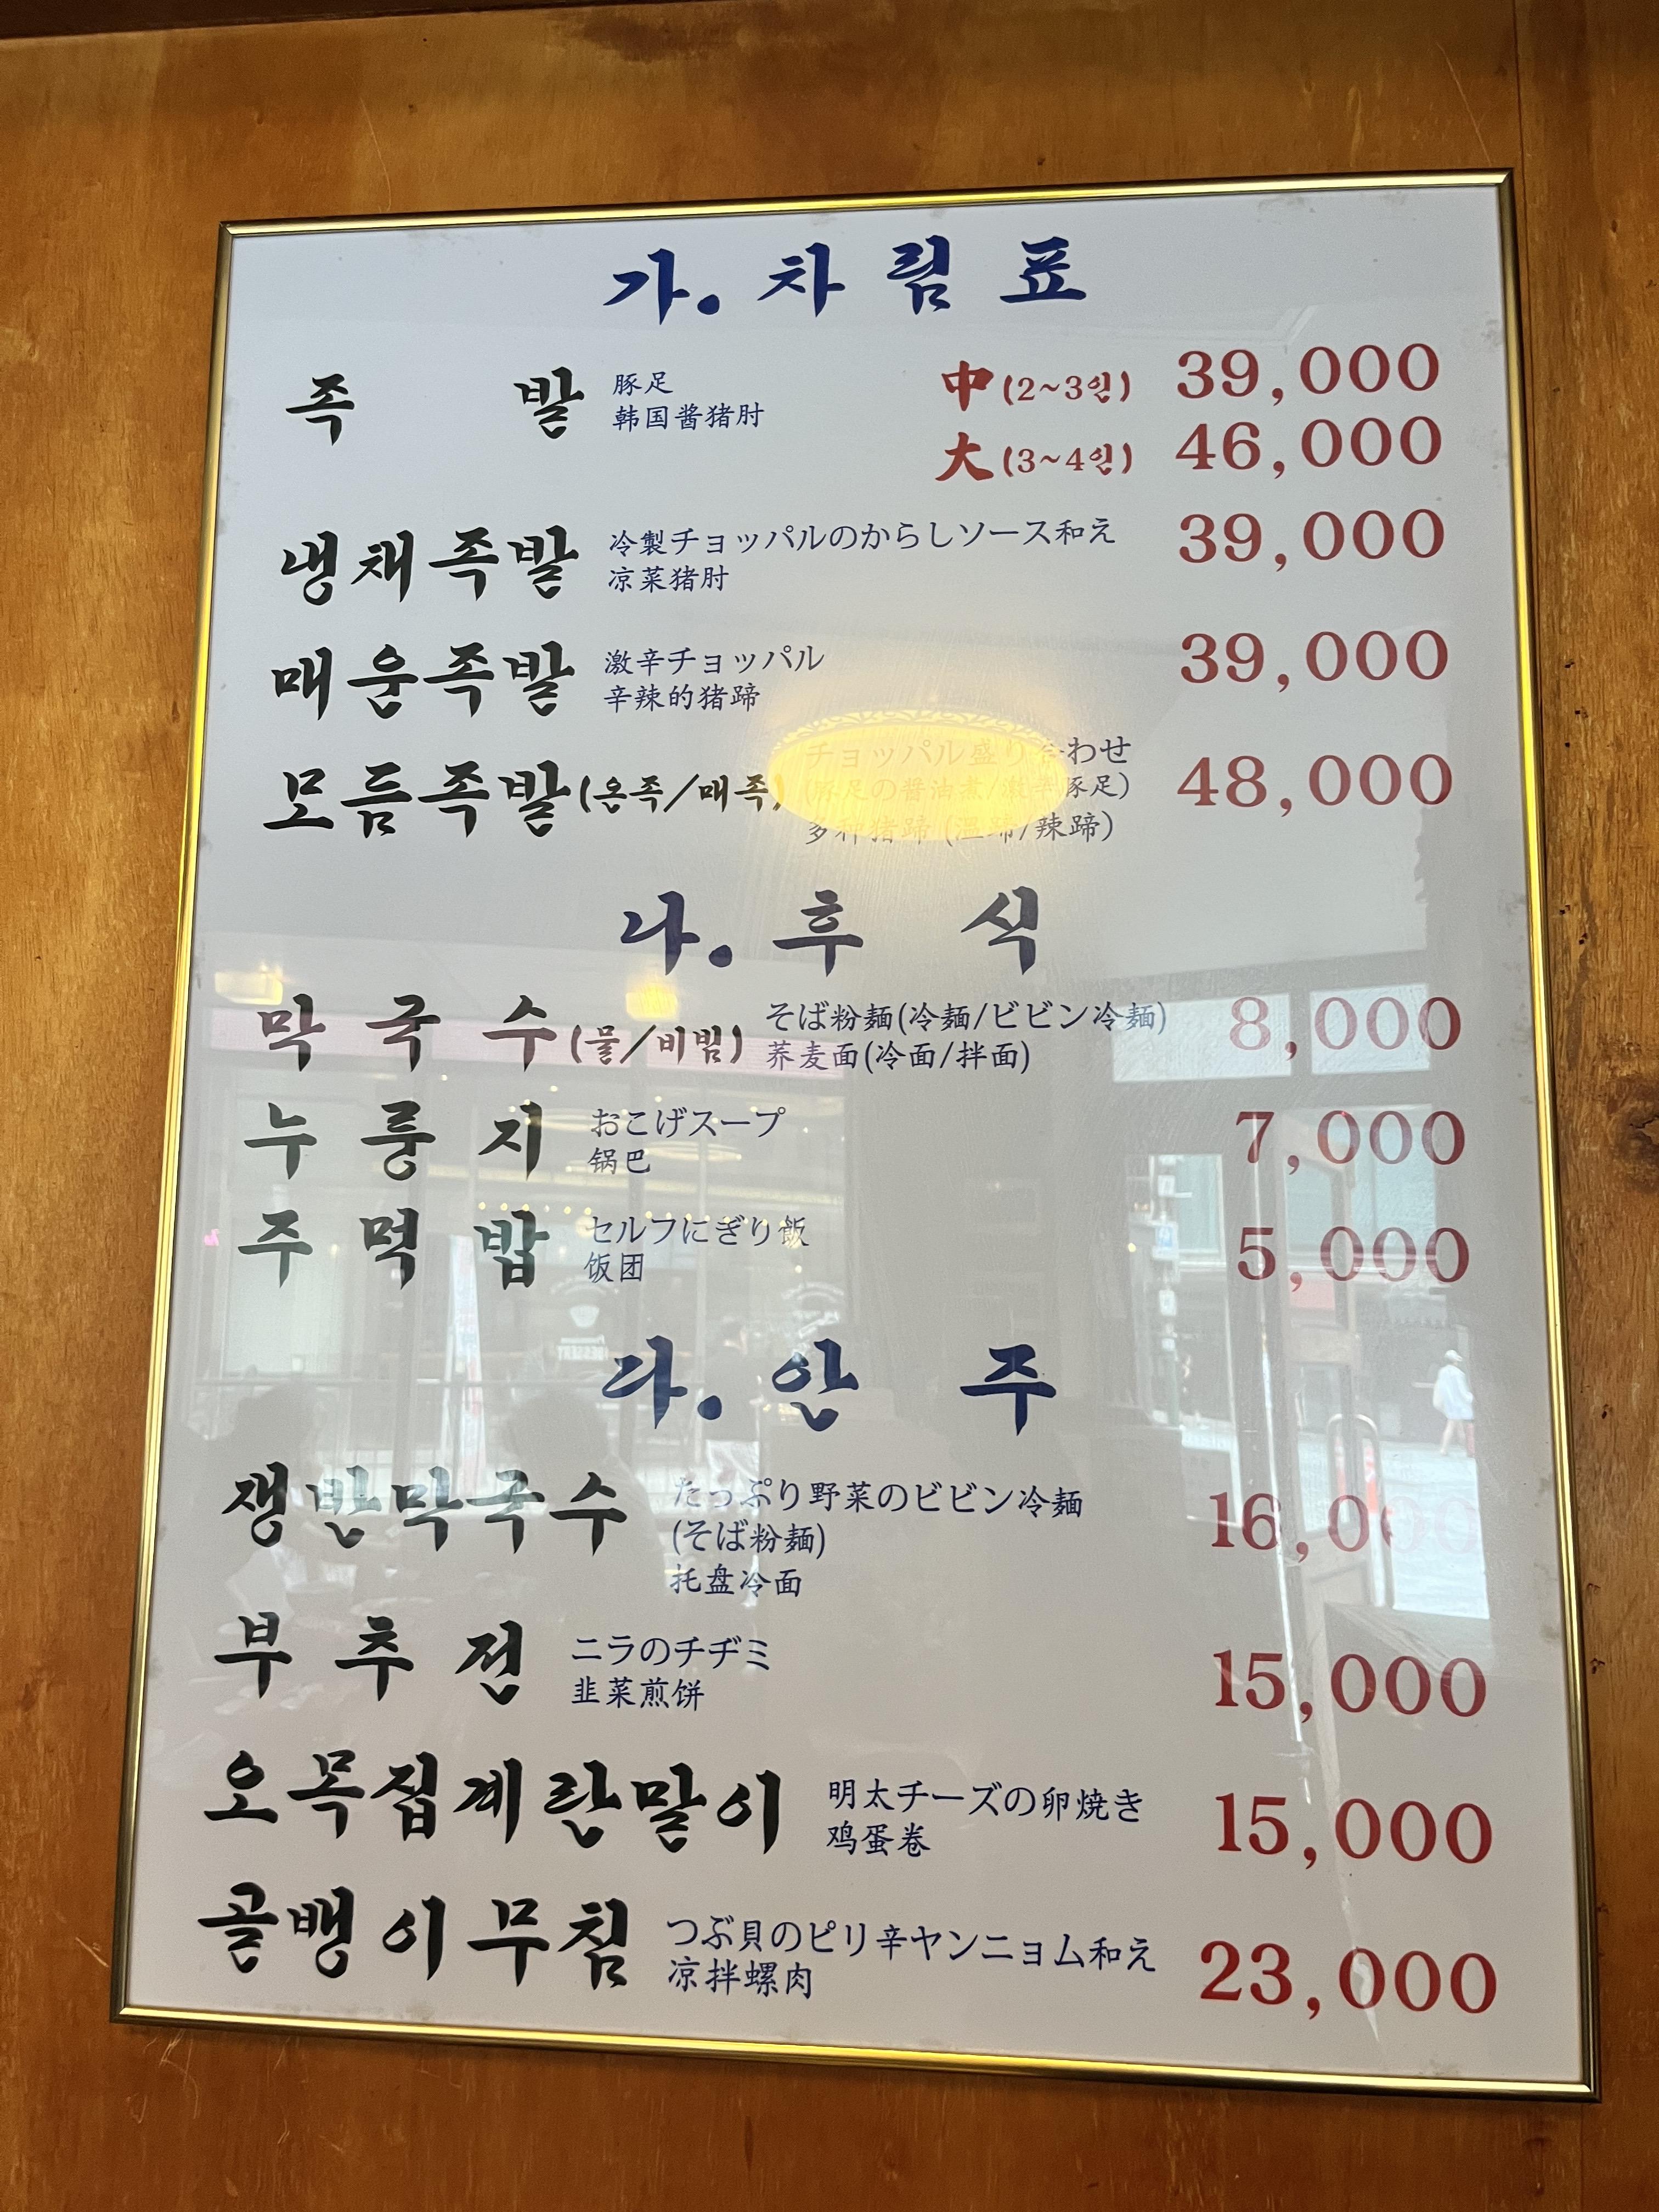 가. 차림표
족발 豚足 中(2~3인) 39,000
韩国酱猪肘
大(3~4인) 46,000
냉채족발 冷製チョッパルのからしソース和え 39,000
凉菜猪肘
매운족발 激辛チョッパル 39,000
辛辣的猪蹄
모듬족발(온족/매족) チョッパル盛り合わせ 48,000
(豚足の醤油煮/激辛豚足)
多种猪蹄 (温蹄/辣蹄)
나. 후식
막국수(물/비빔) そば粉麺(冷麺/ビビン冷麺) 8,000
荞麦面(冷面/拌面)
누룽지 おこげスープ 7,000
锅巴
주먹밥 セルフにぎり飯 5,000
饭团
다. 안주
쟁반막국수 たっぷり野菜のビビン冷麺 16,000
(そば粉麺)
托盘冷面
부추전 ニラのチヂミ 15,000
韭菜煎饼
오목집계란말이 明太チーズの卵焼き 15,000
鸡蛋卷
골뱅이무침 つぶ貝のピリ辛ヤンニョム和え 23,000
凉拌螺肉
DESSERT